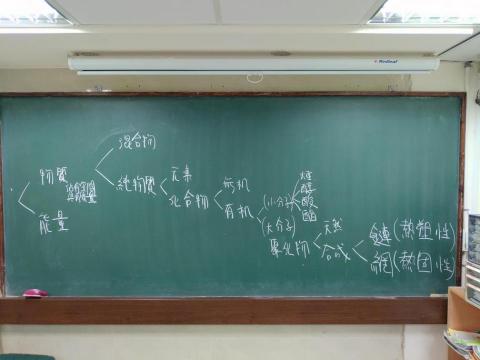 Redleaf
混合物
物質
純物質
元素
化合物
能量
無机
有机
(小分子)
烴
醇
酸
酯
(大分子)
聚化物
天然
合成
鏈(熱塑性)
網(熱固性)